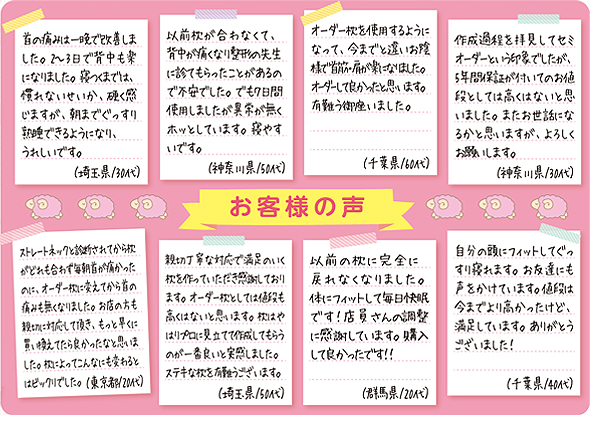 首の痛みは一晩で改善しま
した。2〜3日で背中も楽
になりました。寝つくまでは、
慣れないせいか、硬く感
じますが、朝までぐっすり
熟睡できるようになり、
うれしいです。
(埼玉県/30代)
以前枕が合わなくて、
背中が痛くなり整形の先生
に診てもらったことがあるの
で不安でした。でも7日間
使用しましたが異常が無く
ホッとしています。寝やす
いです。
(神奈川県/50代)
オーダー枕を使用するように
なって、今までと違いお陰
様で首筋・肩が楽になりました。
オーダーして良かったと思います。
有難う御座いました。
(千葉県/60代)
作成過程を拝見してセミ
オーダーという印象でしたが、
5年間保証が付いてのお値
段としては高くはないと思
いました。またお世話にな
るかと思いますが、よろしく
お願いします。
(神奈川県/30代)
お客様の声
ストレートネックと診断されてから枕
がどれも合わず毎朝首が痛かった
のに、オーダー枕に変えてから首の
痛みも無くなりました。お店の方も
親切に対応して頂き、もっと早くに
買い換えてたら良かったなと思いま
した。枕によってこんなにも変わると
はビックリでした。(東京都/20代)
親切丁寧な対応で満足のいく
枕を作っていただき感謝しており
ます。オーダー枕としては値段も
高くはないと思います。枕はや
はりプロに見立てて作成してもらう
のが一番良いと実感しました。
ステキな枕を有難うございます。
(埼玉県/50代)
以前の枕に完全に
戻れなくなりました。
体にフィットして毎日快眠
です!店員さんの調整
に感謝しています。購入
して良かったです!!
(群馬県/20代)
自分の頭にフィットしてぐっ
すり寝れます。お友達にも
声をかけています。値段は
今までより高かったけど、
満足しています。ありがとう
ございました!
(千葉県/40代)